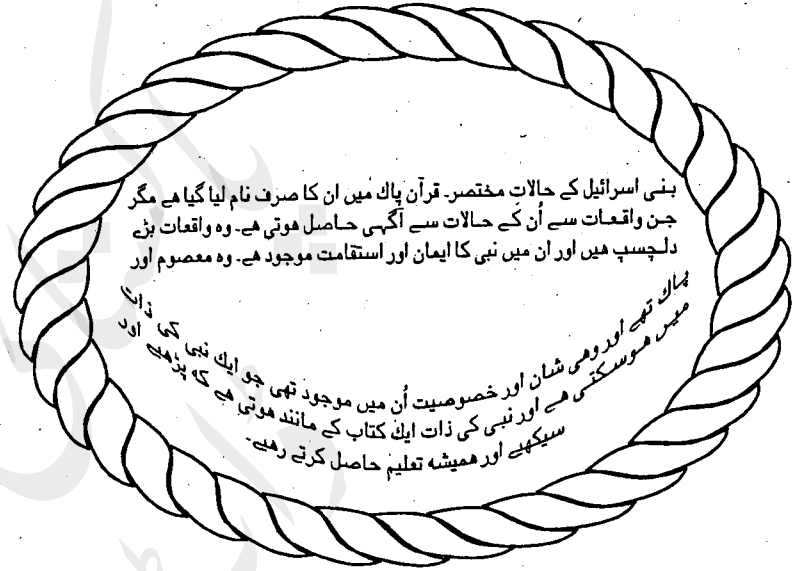 بنی اسرائیل کے حالاتِ مختصر۔ قرآن پاك میں ان کا صرف نام لیا گیا ھے مگر
جن واقعات سے اُن کے حالات سے آگہی حاصل ھوتی ھے۔ وہ واقعات بڑے
دلچسپ ھیں اور ان میں نبی کا ایمان اور استقامت موجود ھے۔ وہ معصوم اور
پاك تھے اور وھی شان اور خصوصیت اُن میں موجود تھی جو ایك نبی کی ذات
میں ھوسکتی ھے اور نبی کی ذات ایك کتاب کے مانند ھوتی ھے که پڑھیے اور
سیکھیے اور ھمیشه تعلیم حاصل کرتے رھیے۔